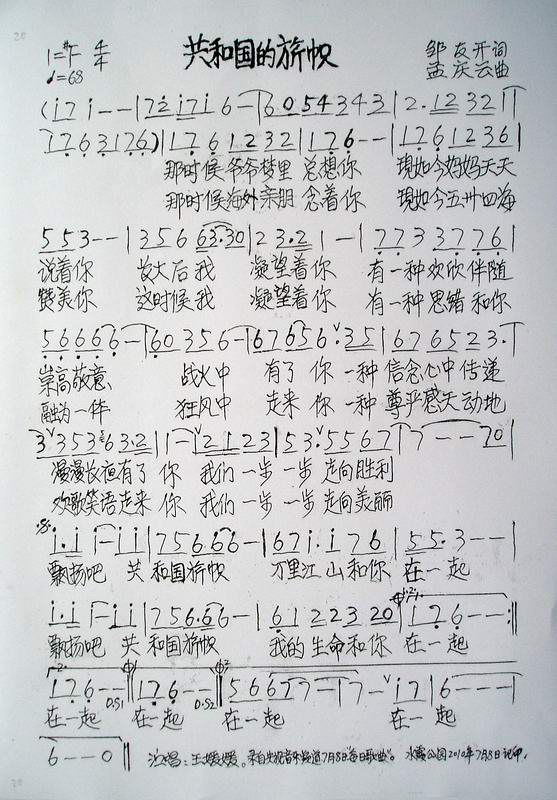 共和国的旗帜
1=#F 4/4
♩=68
邹友开词
孟庆云曲
(i 7 i - - | 7 2 i 7 i 6 - | 6 0 5 4 3 4 3 | 2 · 1 2 3 2 1 |
1 7 6 3 1 7 6) | 1 7 6 1 2 3 2 | 1 7 6 - - | 1 7 6 1 2 3 6 |
那时候爷爷梦里 总想你 现如今妈妈天天
那时候海外亲朋 念着你 现如今五卅四海
5 5 3 - - | 3 5 6 6 3 · 3 0 | 2 3 · 2 1 - | 7 7 3 3 7 7 6 |
说着你 长大后我 凝望着你 有一种欢欣伴随
赞美你 这时候我 凝望着你 有一种思绪和你
5 6 6 6 6 - | 6 0 3 5 6 - | 6 7 6 5 6 · 3 5 | 6 7 6 5 2 3 ·
崇高敬意 战火中 有了你 一种信念心中传递
融为一体 狂风中 走来你 一种尊严感天动地
3 3 5 3 5 6 3 2 | 1 - 2 1 2 3 | 5 3 · 5 5 6 7 | 7 - - 7 0 |
漫漫长夜有了你 我们一步一步走向胜利
欢歌笑语走来你 我们一步一步走向美丽
i · i i - i i | 7 5 6 · 6 6 - | 6 7 i · i 7 6 | 5 5 · 3 - - |
飘扬吧 共和国旗帜 万里江山和你在一起
i · i i - i i | 7 5 6 · 6 6 - | 6 1 2 2 3 2 0 | 1 7 6 - - :||
飘扬吧 共和国旗帜 我的生命和你在一起
1 7 6 - - D.S1 | 1 7 6 - - D.S2 | 5 6 6 7 7 - | 7 - i 7 | 6 - - - |
在一起 在一起 在一起 在一起
6 - - 0 || 演唱：王媛媛。录自央视音乐频道7月8日每日歌曲。 公园2010年7月8日记印.